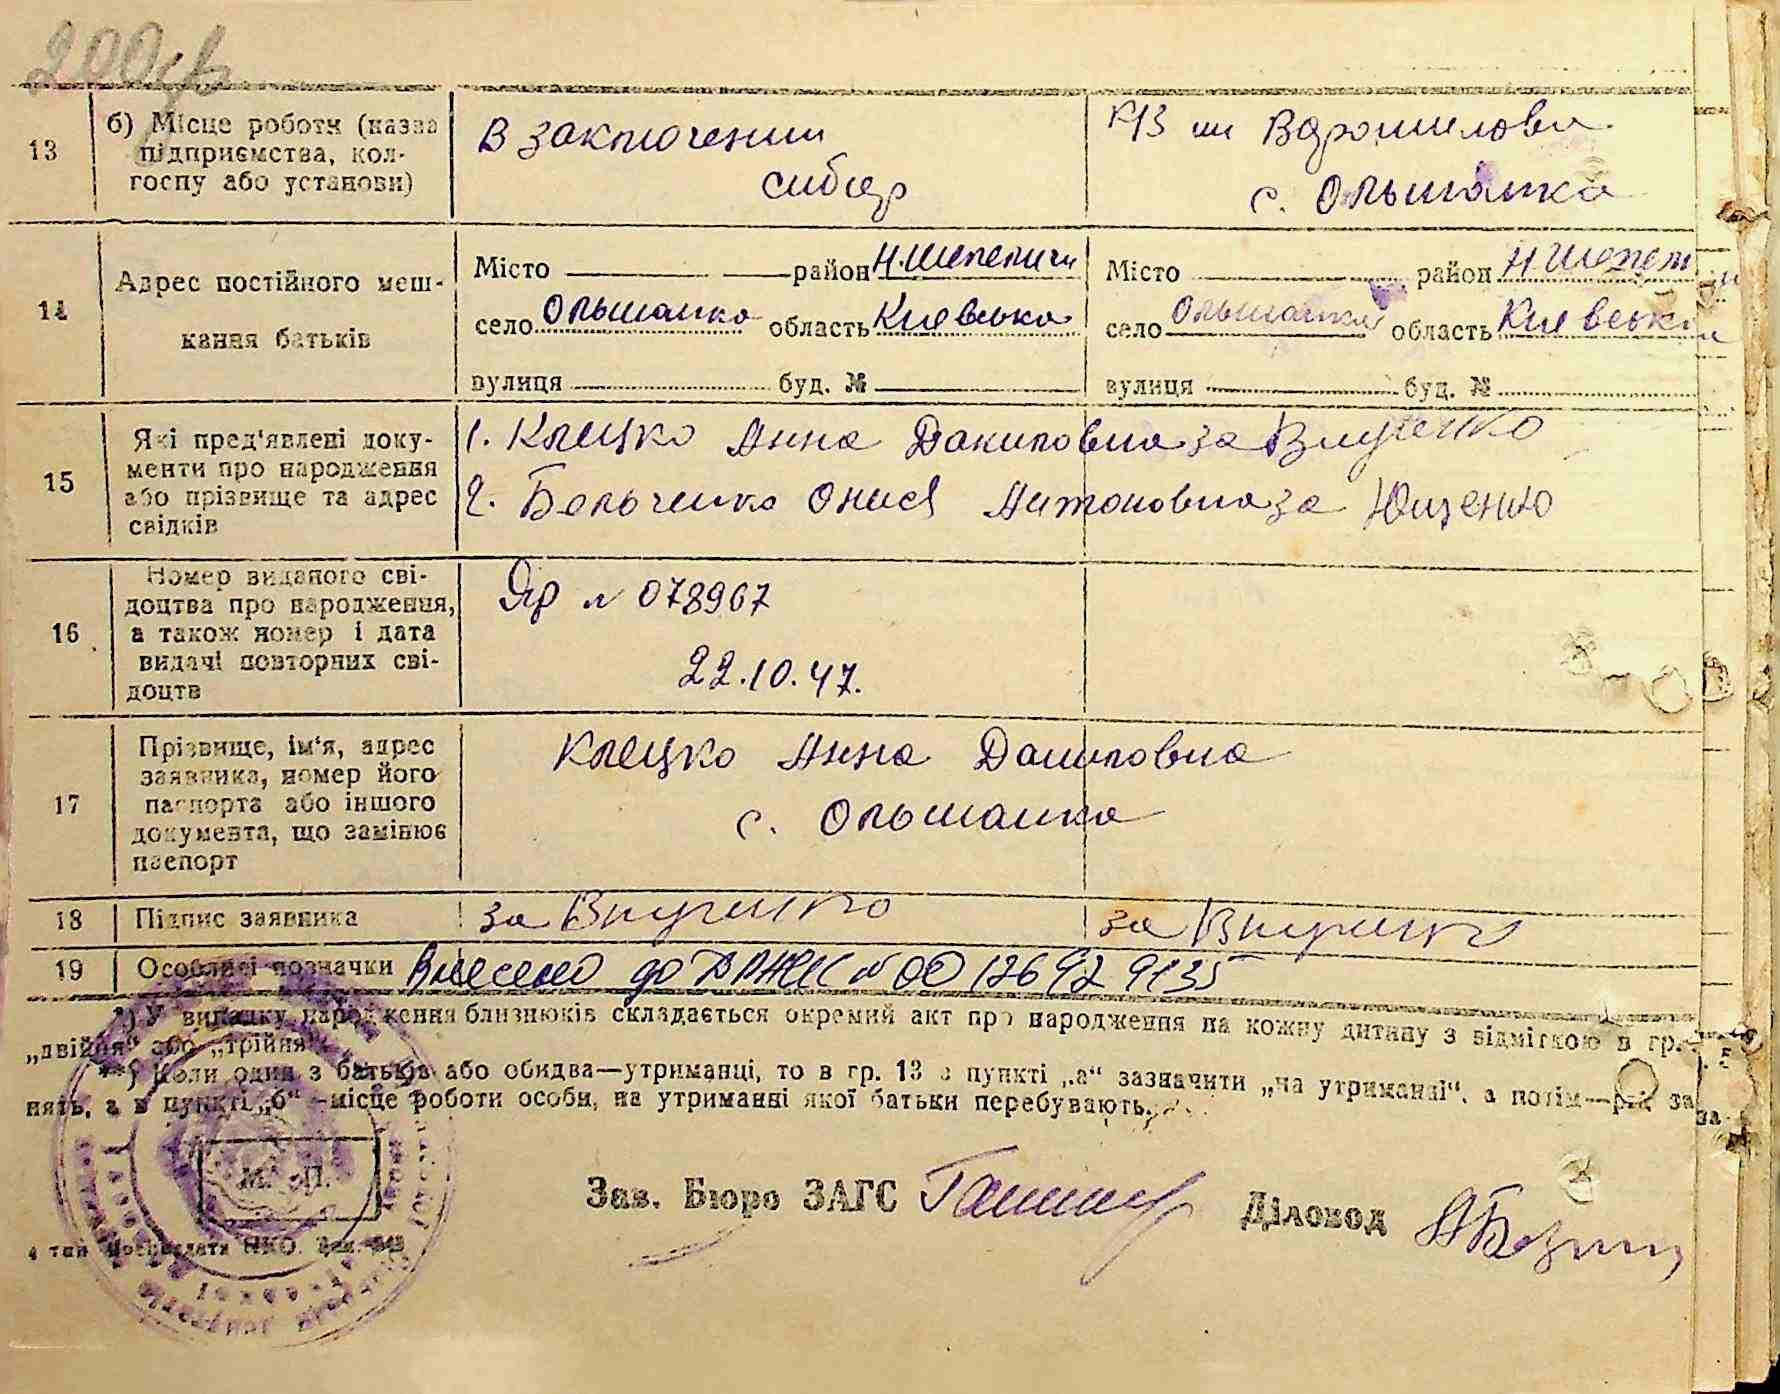 200гр
13
б) Місце роботи (назва
підприємства, кол-
госпу або установи)
В заключении
сибир
К/З им Ворошилова.
с. Ольшанка
14
Адрес постійного меш-
кання батьків
Місто район Н.Шепеличи
село Ольшанка область Киевська
вулиця буд. №
Місто район Н Шепел
село Ольшанка область Киевська
вулиця буд. №
15
Які пред'явлені доку-
менти про народження
або прізвище та адрес
свідків
1. Клецко Анна Даниловна за
2. Бельченко Онися Антоновна за Ющенко
16
Номер виданого сві-
доцтва про народження,
а також номер і дата
видачі повторних сві-
доцтв
Яр № 078967
22.10.47.
17
Прізвище, ім'я, адрес
заявника, номер його
паспорта або іншого
документа, що замінює
паспорт
Клецко Анна Даниловна
с. Ольшанка
18
Підпис заявника
за
за
19
Особливі позначки
Внесено до ДРАЦС № 00126929135
*) У випадку народження близнюків складається окремий акт про народження на кожну дитину з відміткою в гр. 5
„двійня“ або „трійня“.
**) Коли один з батьків або обидва—утриманці, то в гр. 13 в пункті „а“ зазначити „на утриманні“, а потім—рід за
нять, а в пункті „б“—місце роботи особи, на утриманні якої батьки перебувають.
М. П.
Зав. Бюро ЗАГС
Діловод